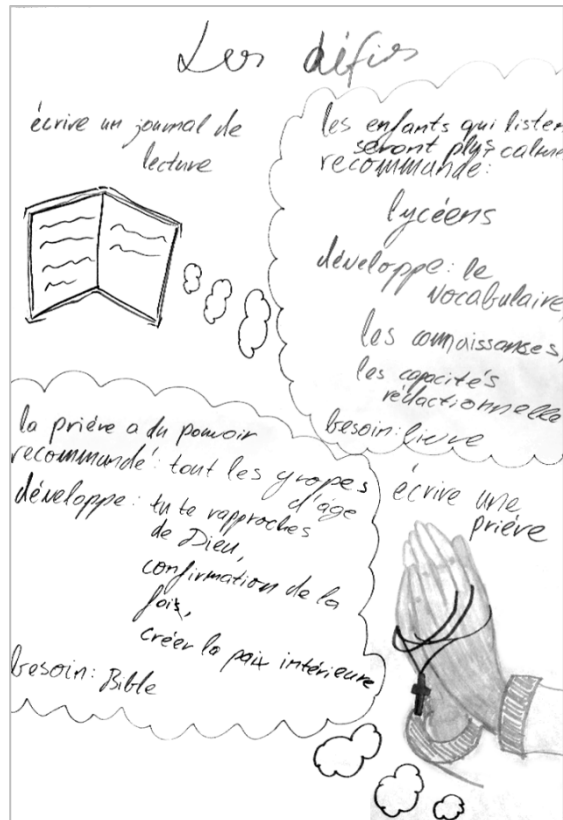 Les défis
écrire un journal de
lecture
les enfants qui listen
seront plus calme
recommande:
lycéens
développe: le
vocabulaire,
les connaissances,
les capacités
rédactionnelle
besoin: livre
la prière a du pouvoir
recommandé: tout les gropes
d'âge
développe: tu te rapproches
de Dieu,
confirmation de la
fois,
créer la paix intérieure
besoin: Bible
écrire une
prière